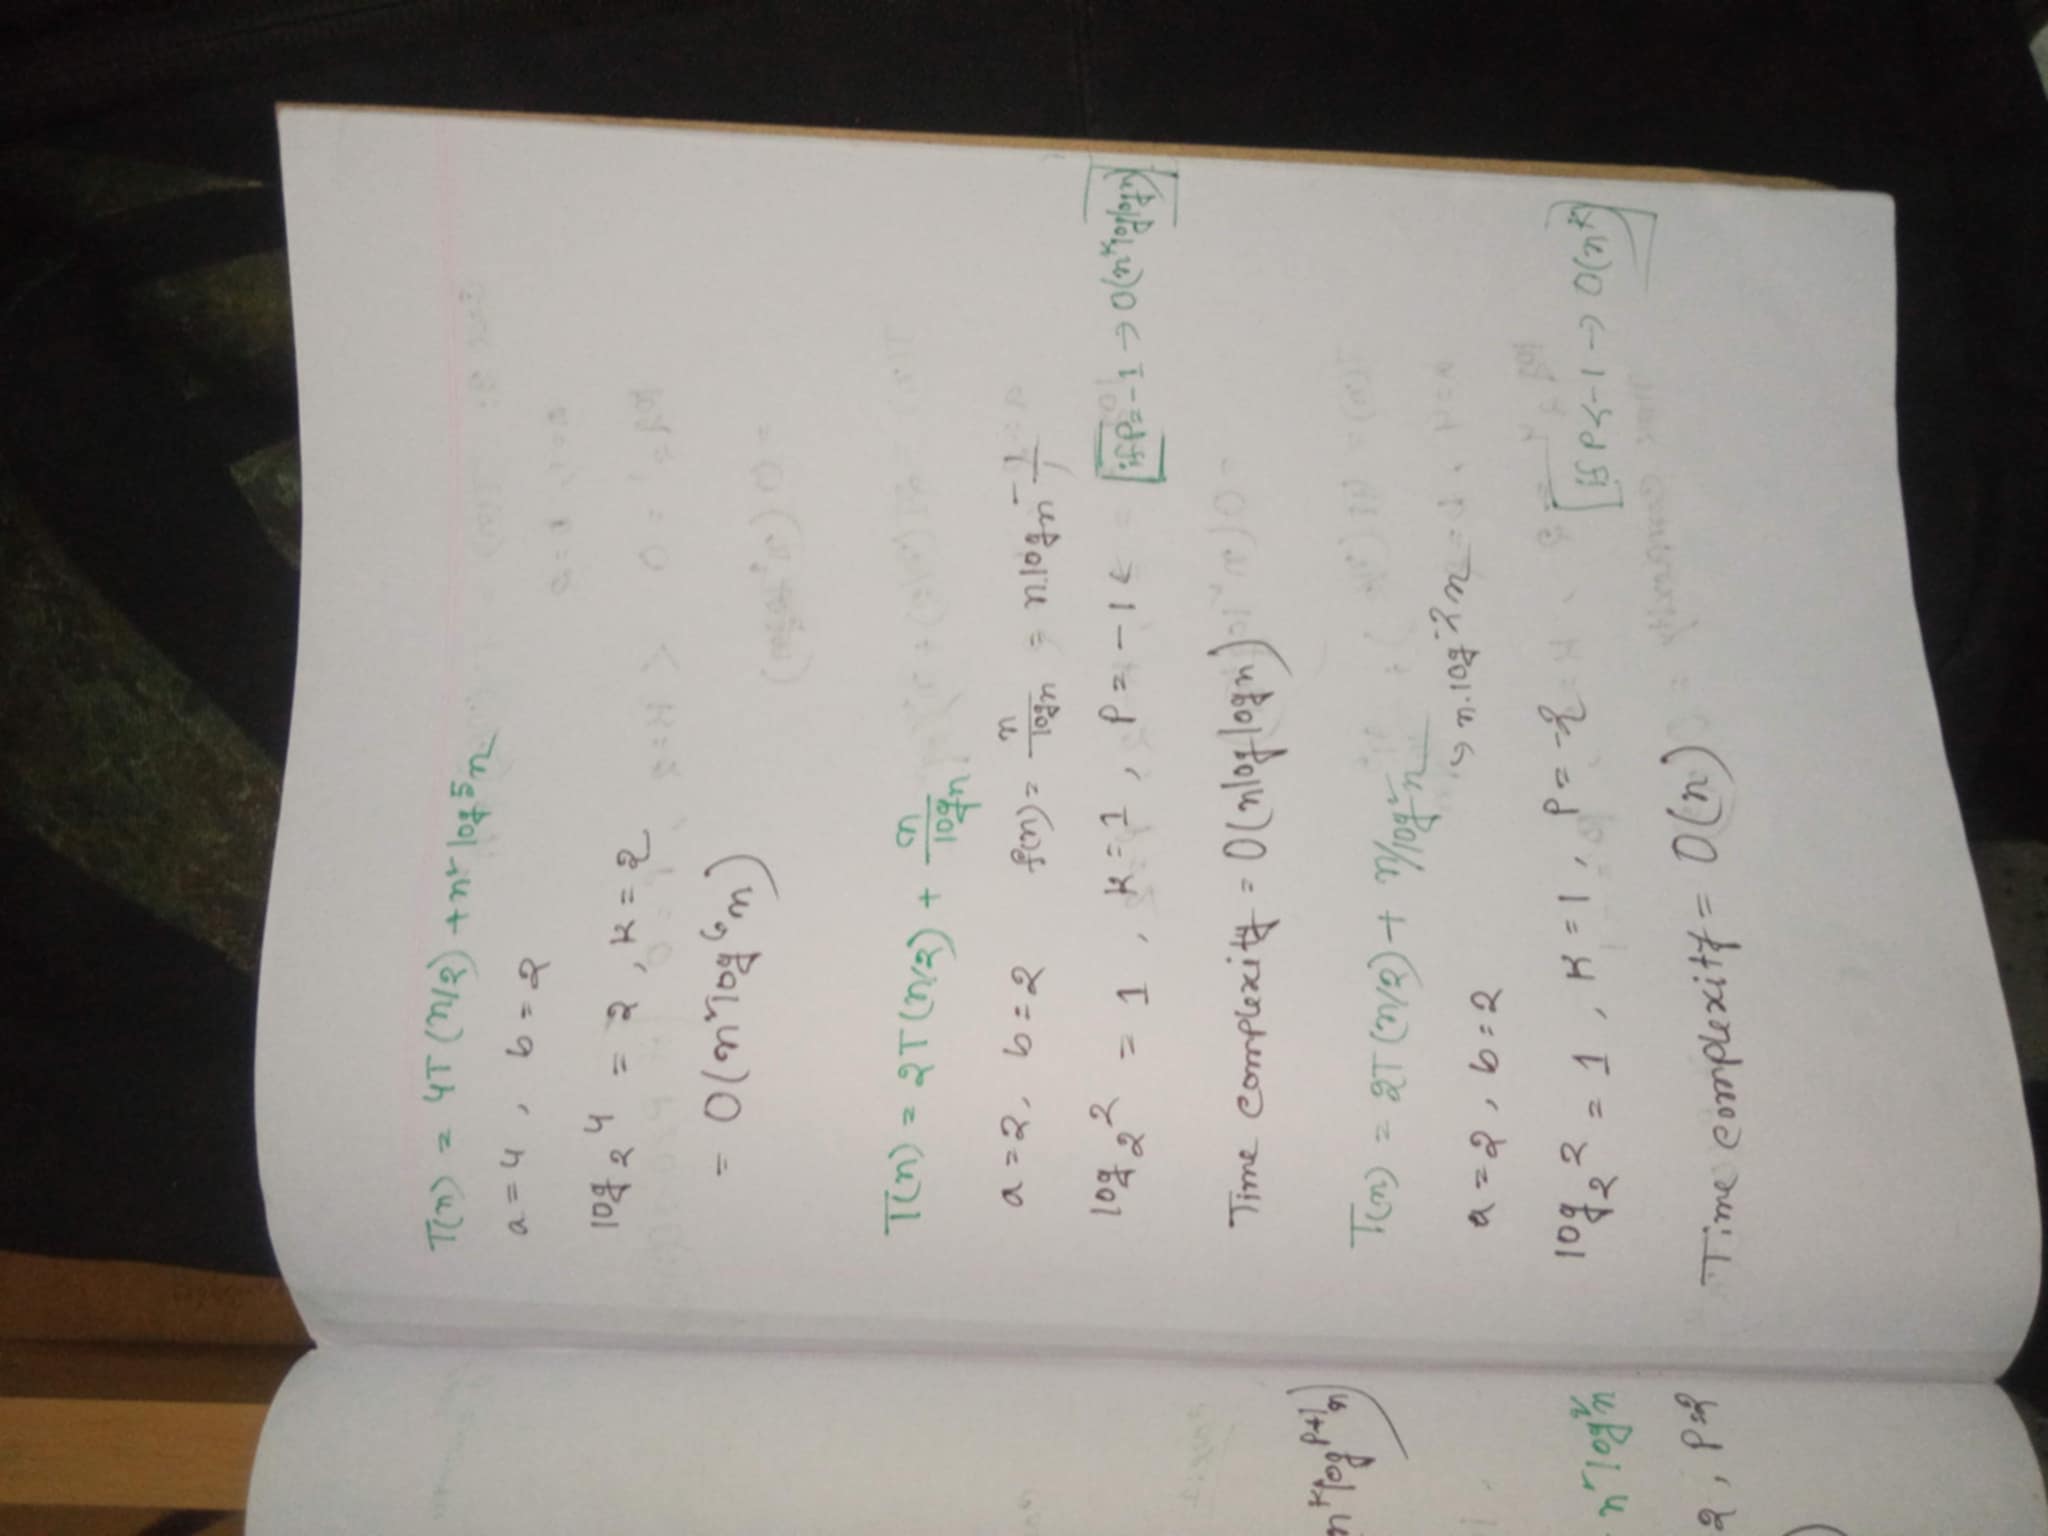 T(n) = 4T (n/2) + n² log⁵n
a = 4 , b = 2
log₂4 = 2 , K = 2
= O(n² log⁶n)
T(n) = 2T(n/2) + n/logn
a = 2, b = 2 f(n) = n/logn = n.logn⁻¹
log₂2 = 1 , K = 1 , P = -1
[if P = -1 → O(nᴷ loglogn)]
Time complexity = O(nloglogn)
T(n) = 2T (n/2) + n/log²n
→ n.log⁻²n
a = 2 , b = 2
log₂2 = 1 , K = 1 , P = -2
[if P < -1 → O(nᴷ)]
Time complexity = O(n)
nᴷlogᴾ⁺¹n)
n² log²n
2 , P = 2